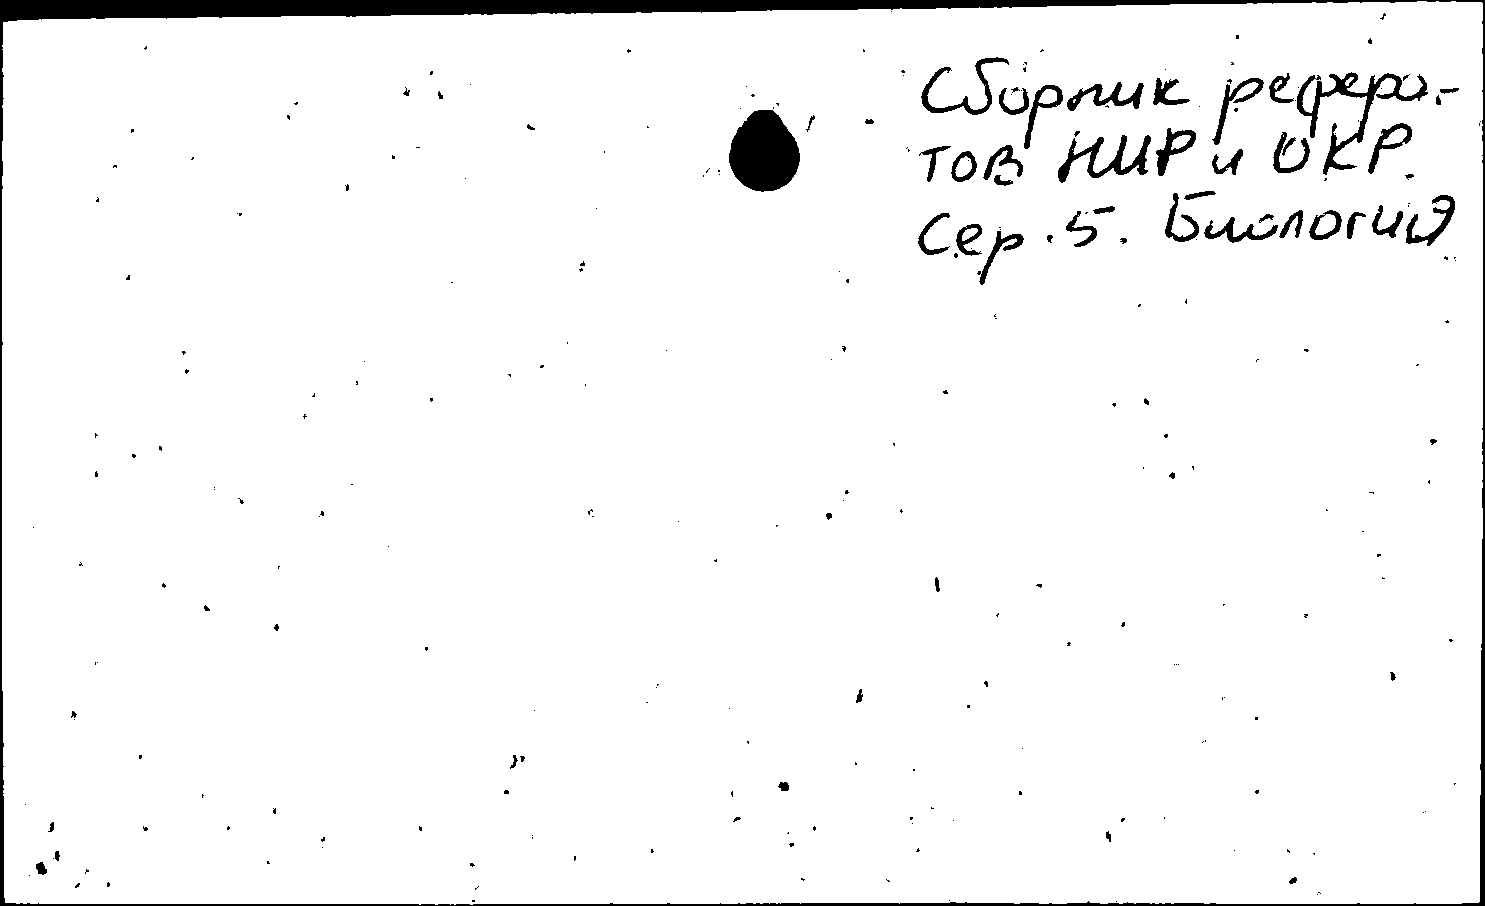 Сборник рефера-
тов НИР и ОКР.
Сер. 5. Биология